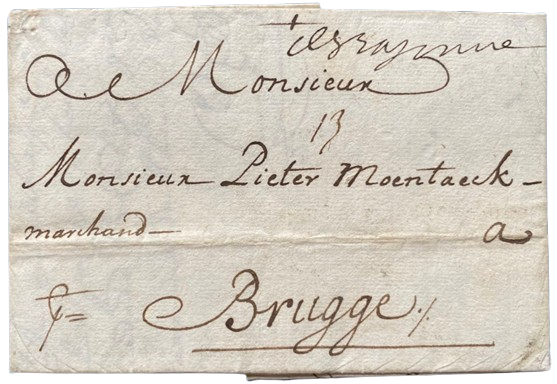 de Bayonne
A Monsieur
13
Monsieur Pieter Moentaeck -
marchand - a
Brugge ./.